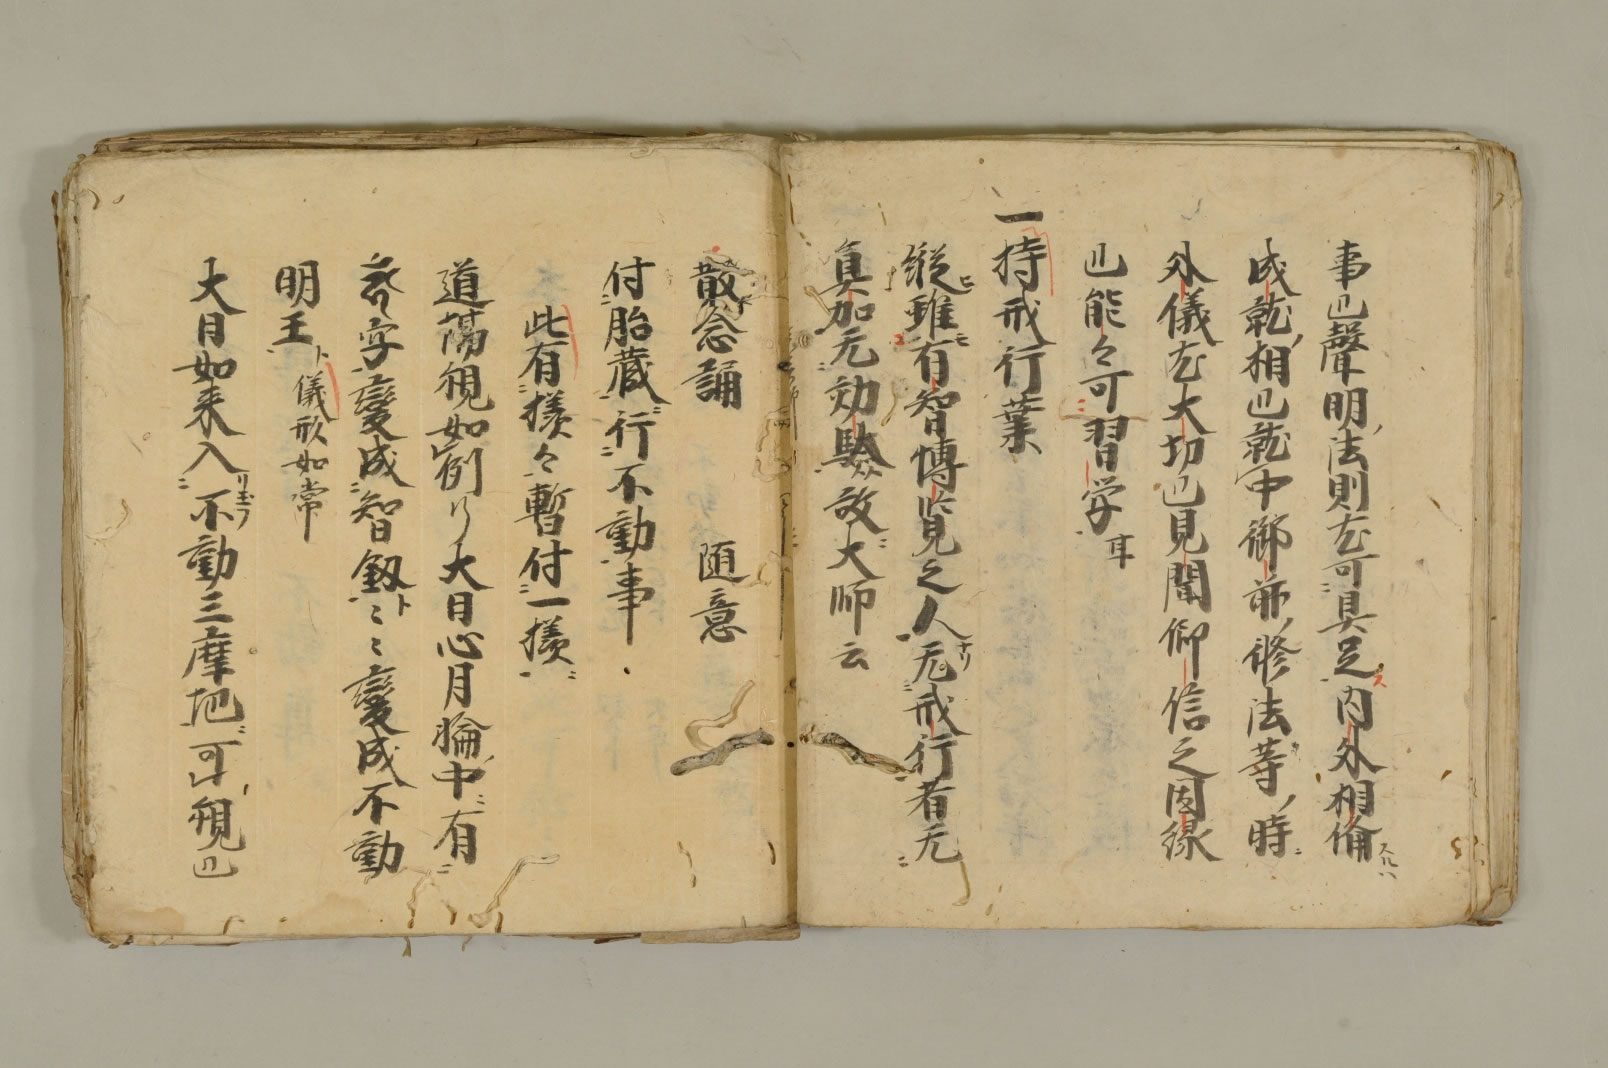 事也聲明法則尤可具足内外相備スルハ
成就相也就中御前修法等時ニ
外儀尤大切也見聞仰信之因縁
也能々可習学耳
一持戒行業
縦ヒ雖有智博覧之人ナリ无戒行者无
真加无効驗故大師云
散念誦 随意
付胎蔵行不動事
此有様々暫付一様ニ
道場観如例〻大日心月輪中ニ有
字變成智釼ト〻〻變成不動
明王ト儀形如常
大日如来入リ玉フ不動三摩地ニ可観也